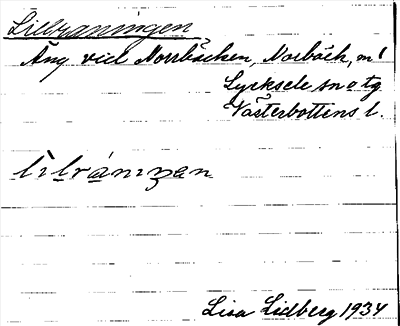 Lillråningen
Äng vid Norrbäcken, Norbäck, m!
Lycksele sn o tg
Västerbottens l.
lìlránıŋən
Lisa Lidberg 1934